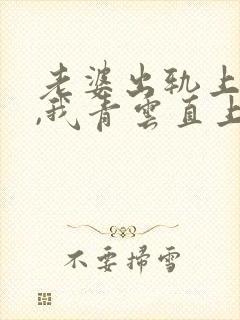 老婆出轨上
,我青雲直上
不要掃雪